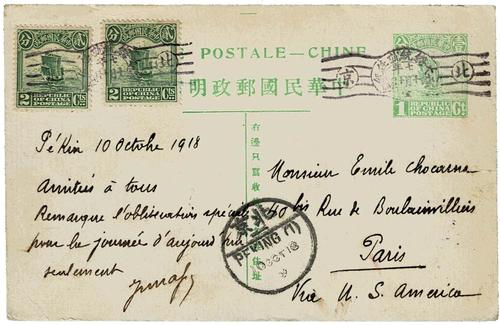 POSTALE — CHINE
明政郵國民華中
2 REPUBLIC OF CHINA POSTAGE Cts
2 REPUBLIC OF CHINA POSTAGE Cts
1 REPUBLIC OF CHINA POSTAGE Ct
京 北
右邊只寫收
住址
Pékin 10 Octobre 1918
Amitiés à tous
Remarque l'oblitération spéciale
pour la journée d'aujourd'hui
seulement
北京
PEKING (1)
10 OCT 18
Monsieur Emile Chocarne
40 bis Rue de Boulainvilliers
Paris
Via U. S. America